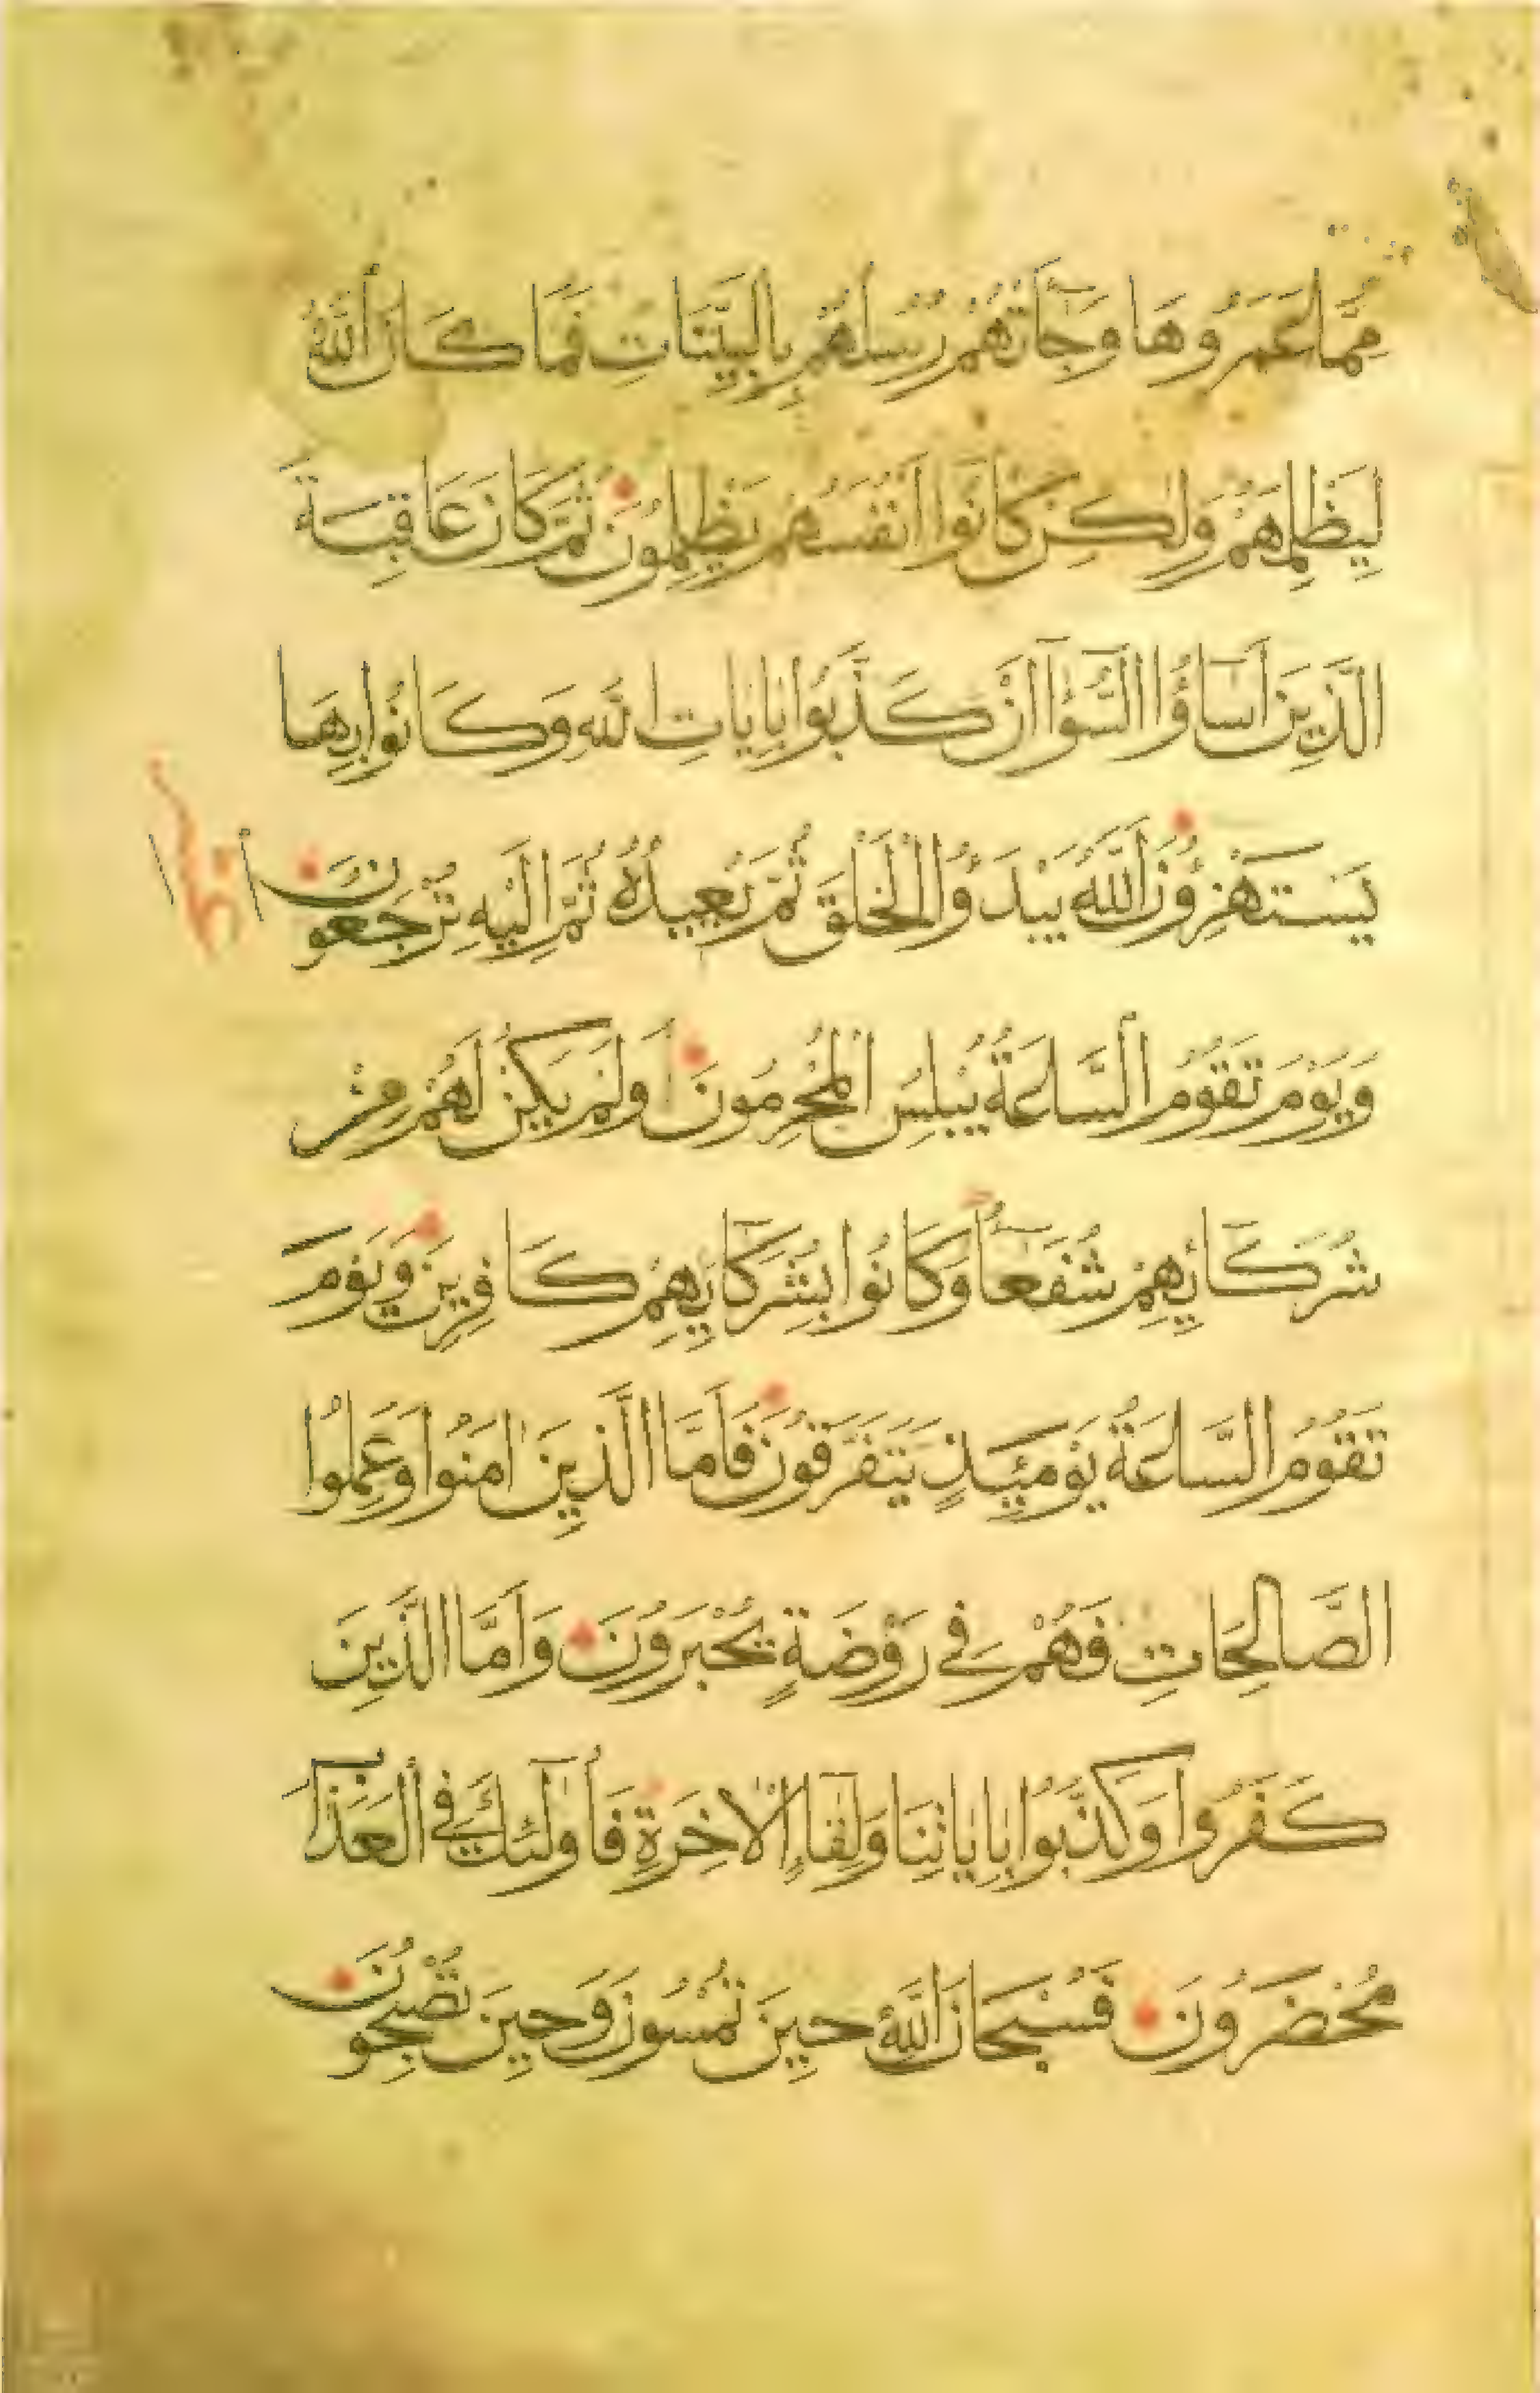 مِمَّا عَمَرُوهَا وَجَآءَتْهُمْ رُسُلُهُمْ بِالْبَيِّنَاتِ فَمَا كَانَ اللَّهُ
لِيَظْلِمَهُمْ وَلَكِنْ كَانُوا أَنْفُسَهُمْ يَظْلِمُونَ ثُمَّ كَانَ عَاقِبَةَ
الَّذِينَ أَسَاؤُا السُّوأَى أَنْ كَذَّبُوا بِايَاتِ اللَّهِ وَكَانُوا بِهَا
يَسْتَهْزِؤُنَ اللَّهُ يَبْدَؤُا الْخَلْقَ ثُمَّ يُعِيدُهُ ثُمَّ إِلَيْهِ تُرْجَعُونَ
وَيَوْمَ تَقُومُ السَّاعَةُ يُبْلِسُ الْمُجْرِمُونَ وَلَمْ يَكُنْ لَهُمْ مِنْ
شُرَكَائِهِمْ شُفَعَآءُ وَكَانُوا بِشُرَكَآئِهِمْ كَافِرِينَ وَيَوْمَ
تَقُومُ السَّاعَةُ يَوْمَئِذٍ يَتَفَرَّقُونَ فَأَمَّا الَّذِينَ امَنُوا وَعَمِلُوا
الصَّالِحَاتِ فَهُمْ فِي رَوْضَةٍ يُحْبَرُونَ وَأَمَّا الَّذِينَ
كَفَرُوا وَكَذَّبُوا بِايَاتِنَا وَلِقَآءِ الْاخِرَةِ فَأُولَئِكَ فِي الْعَذَابِ
مُحْضَرُونَ فَسُبْحَانَ اللَّهِ حِينَ تُمْسُونَ وَحِينَ تُصْبِحُونَ